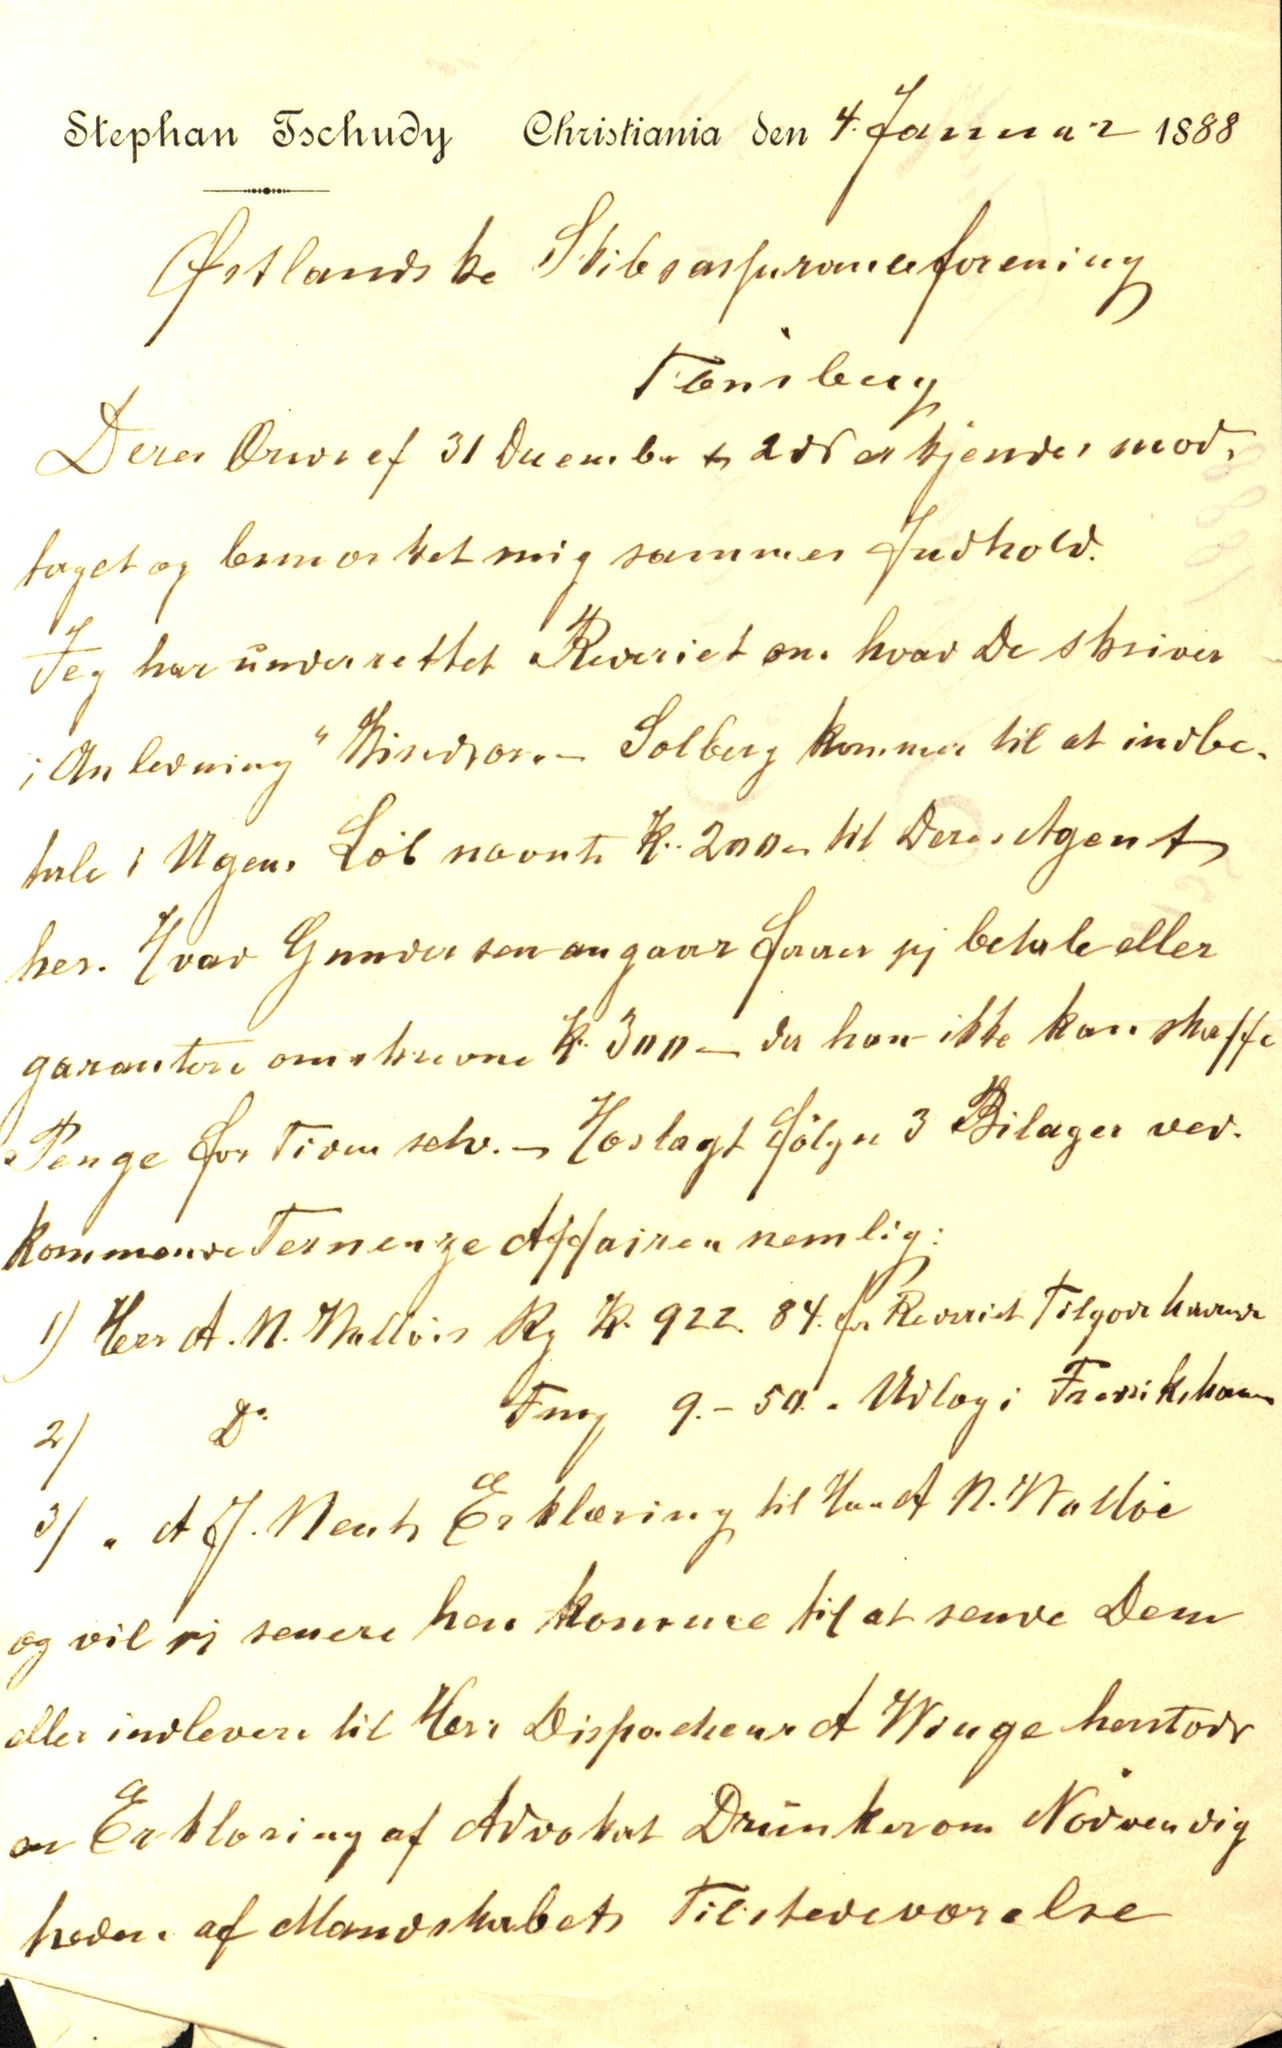 Stephan Tschudy Christiania den 4. Januar 1888
Østlandske Skibsassuranceforening
Tønsberg
Deres Ærede af 31 December & 2 ds erkjendes mod-
taget og bemærket mig sammes Indhold.
Jeg har underrettet Rederiet om hvad De skriver
i Anledning "Windsor. — Solberg kommer til at indbe-
tale i Ugens Løb nævnte Kr. 200 — til Deres Agent
her. Hvad Gundersen angaar faaer jeg betale eller
garantere omskrevne Kr. 300 — da han ikke kan skaffe
Penge for Tiden selv. — Hoslagt følger 3 Bilager ved-
kommende Ternenze Affairen nemlig:
1) Herr A. N. Walløes Rg Kr. 922. 84. for Rederiet Tilgodehavende
2) Do 9. - 50. Udlæg i Fredrikshavn
3) " A J. Erklæring til Herr A N. Walløe
og vil jeg senere hen komme til at sende Dem
eller indlevere til Herr Dispacheur A Winge herstods
en Erklæring af Advokat Drünker om Nødvendig
heden af Mandskabets Tilstedeværelse